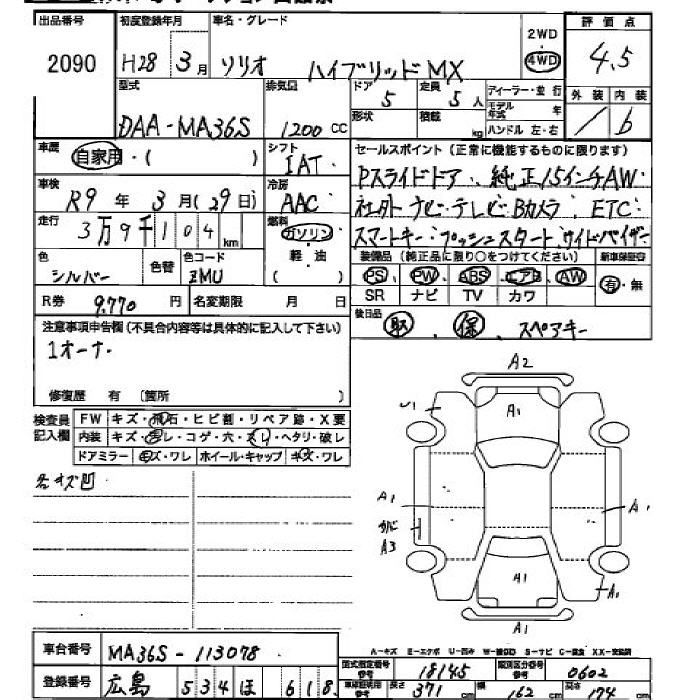 出品番号 初度登録年月 車名・グレード 2WD 評価点
2090 H28 3月 ソリオ ハイブリッドMX 4WD 4.5
型式 排気量 ドア 5 定員 5人 ディーラー・並行 外装 内装
DAA-MA36S 1200cc 形状 積載 kg モデル年式 年 ハンドル 左・右 / b
車歴 自家用・( ) シフト IAT セールスポイント(正常に機能するものに限ります)
車検 R9年 3月(29日) 冷房 AAC Pスライドドア、純正15インチAW・
走行 3万9千104km 燃料 ガソリン 軽油 ( ) 社外ナビ・テレビ・Bカメラ・ETC・
スマートキー・プッシュスタート・サイドバイザー
色 シルバー 色替 色コード ZMU 装備品(純正品に限り○をつけてください) 新車保証書
PS PW ABS エアB AW 有・無
R券 9,770円 名変期限 月 日 SR ナビ TV カワ
注意事項申告欄(不具合内容等は具体的に記入して下さい) 後日品 取、保、スペアキー
1オーナー
修復歴 有 〔箇所 〕
検査員 FW キズ・飛石・ヒビ割・リペア跡・X要
記入欄 内装 キズ・汚レ・コゲ・穴・スレ・ヘタリ・破レ
ドアミラー キズ・ワレ ホイール・キャップ キズ・ワレ
A2
A1
A1
A1
A3
A1
A1
A1
A1
A-キズ E-エクボ U-凹み W-波打ち S-サビ C-腐食 XX-交換済
車台番号 MA36S-113078 型式指定番号 参考 18145 類別区分番号 参考 0602
登録番号 広島 534 ほ 618 車体証明用 参考 長さ 371cm 幅 162cm 高さ 174cm